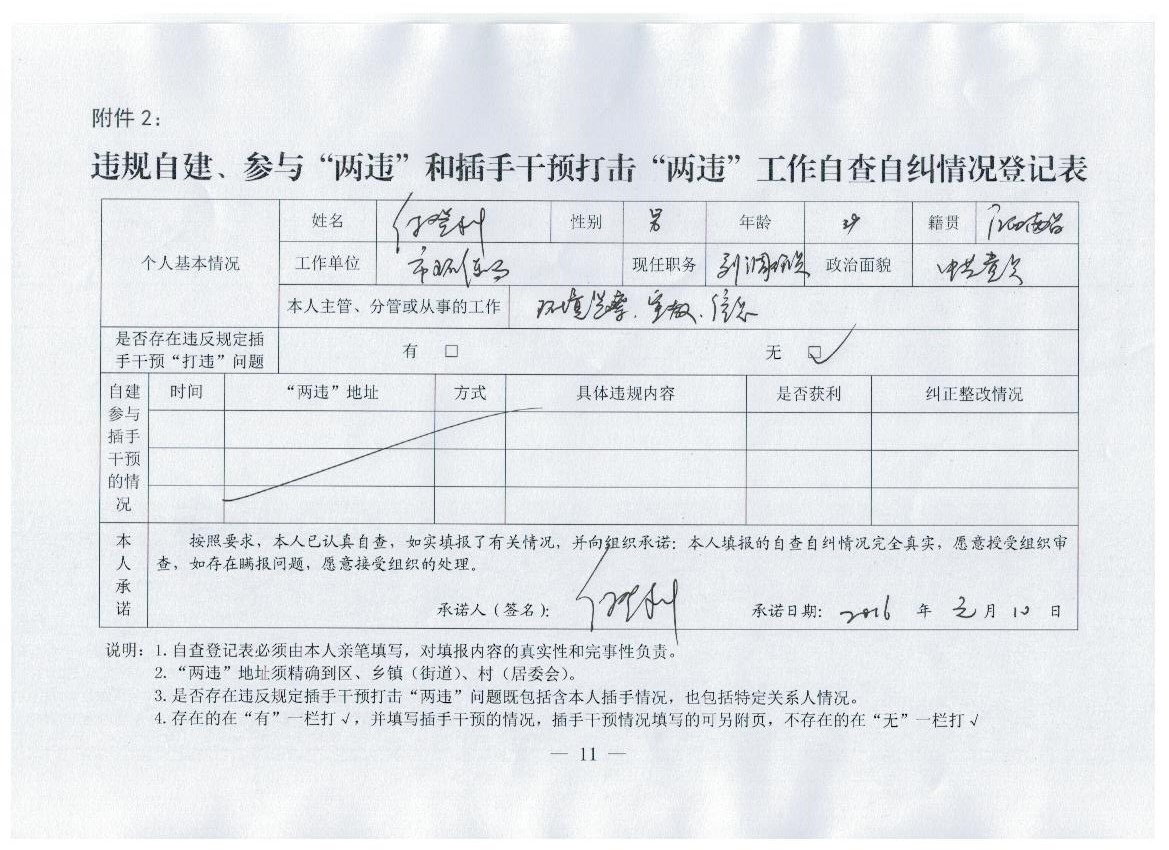 附件2：
违规自建、参与“两违”和插手干预打击“两违”工作自查自纠情况登记表
个人基本情况 姓名 性别 男 年龄 籍贯
工作单位 市环保局 现任职务 政治面貌 中共党员
本人主管、分管或从事的工作 环境监察、宣教、信息
是否存在违反规定插
手干预“打违”问题 有 □ 无 □✓
自建参与插手干预的情况 时间 “两违”地址 方式 具体违规内容 是否获利 纠正整改情况
本人承诺
按照要求，本人已认真自查，如实填报了有关情况，并向组织承诺：本人填报的自查自纠情况完全真实，愿意授受组织审
查，如存在瞒报问题，愿意接受组织的处理。
承诺人（签名）： 承诺日期：2016 年 元 月 10 日
说明：1.自查登记表必须由本人亲笔填写，对填报内容的真实性和完事性负责。
2.“两违”地址须精确到区、乡镇（街道）、村（居委会）。
3.是否存在违反规定插手干预打击“两违”问题既包括含本人插手情况，也包括特定关系人情况。
4.存在的在“有”一栏打√，并填写插手干预的情况，插手干预情况填写的可另附页，不存在的在“无”一栏打√
— 11 —